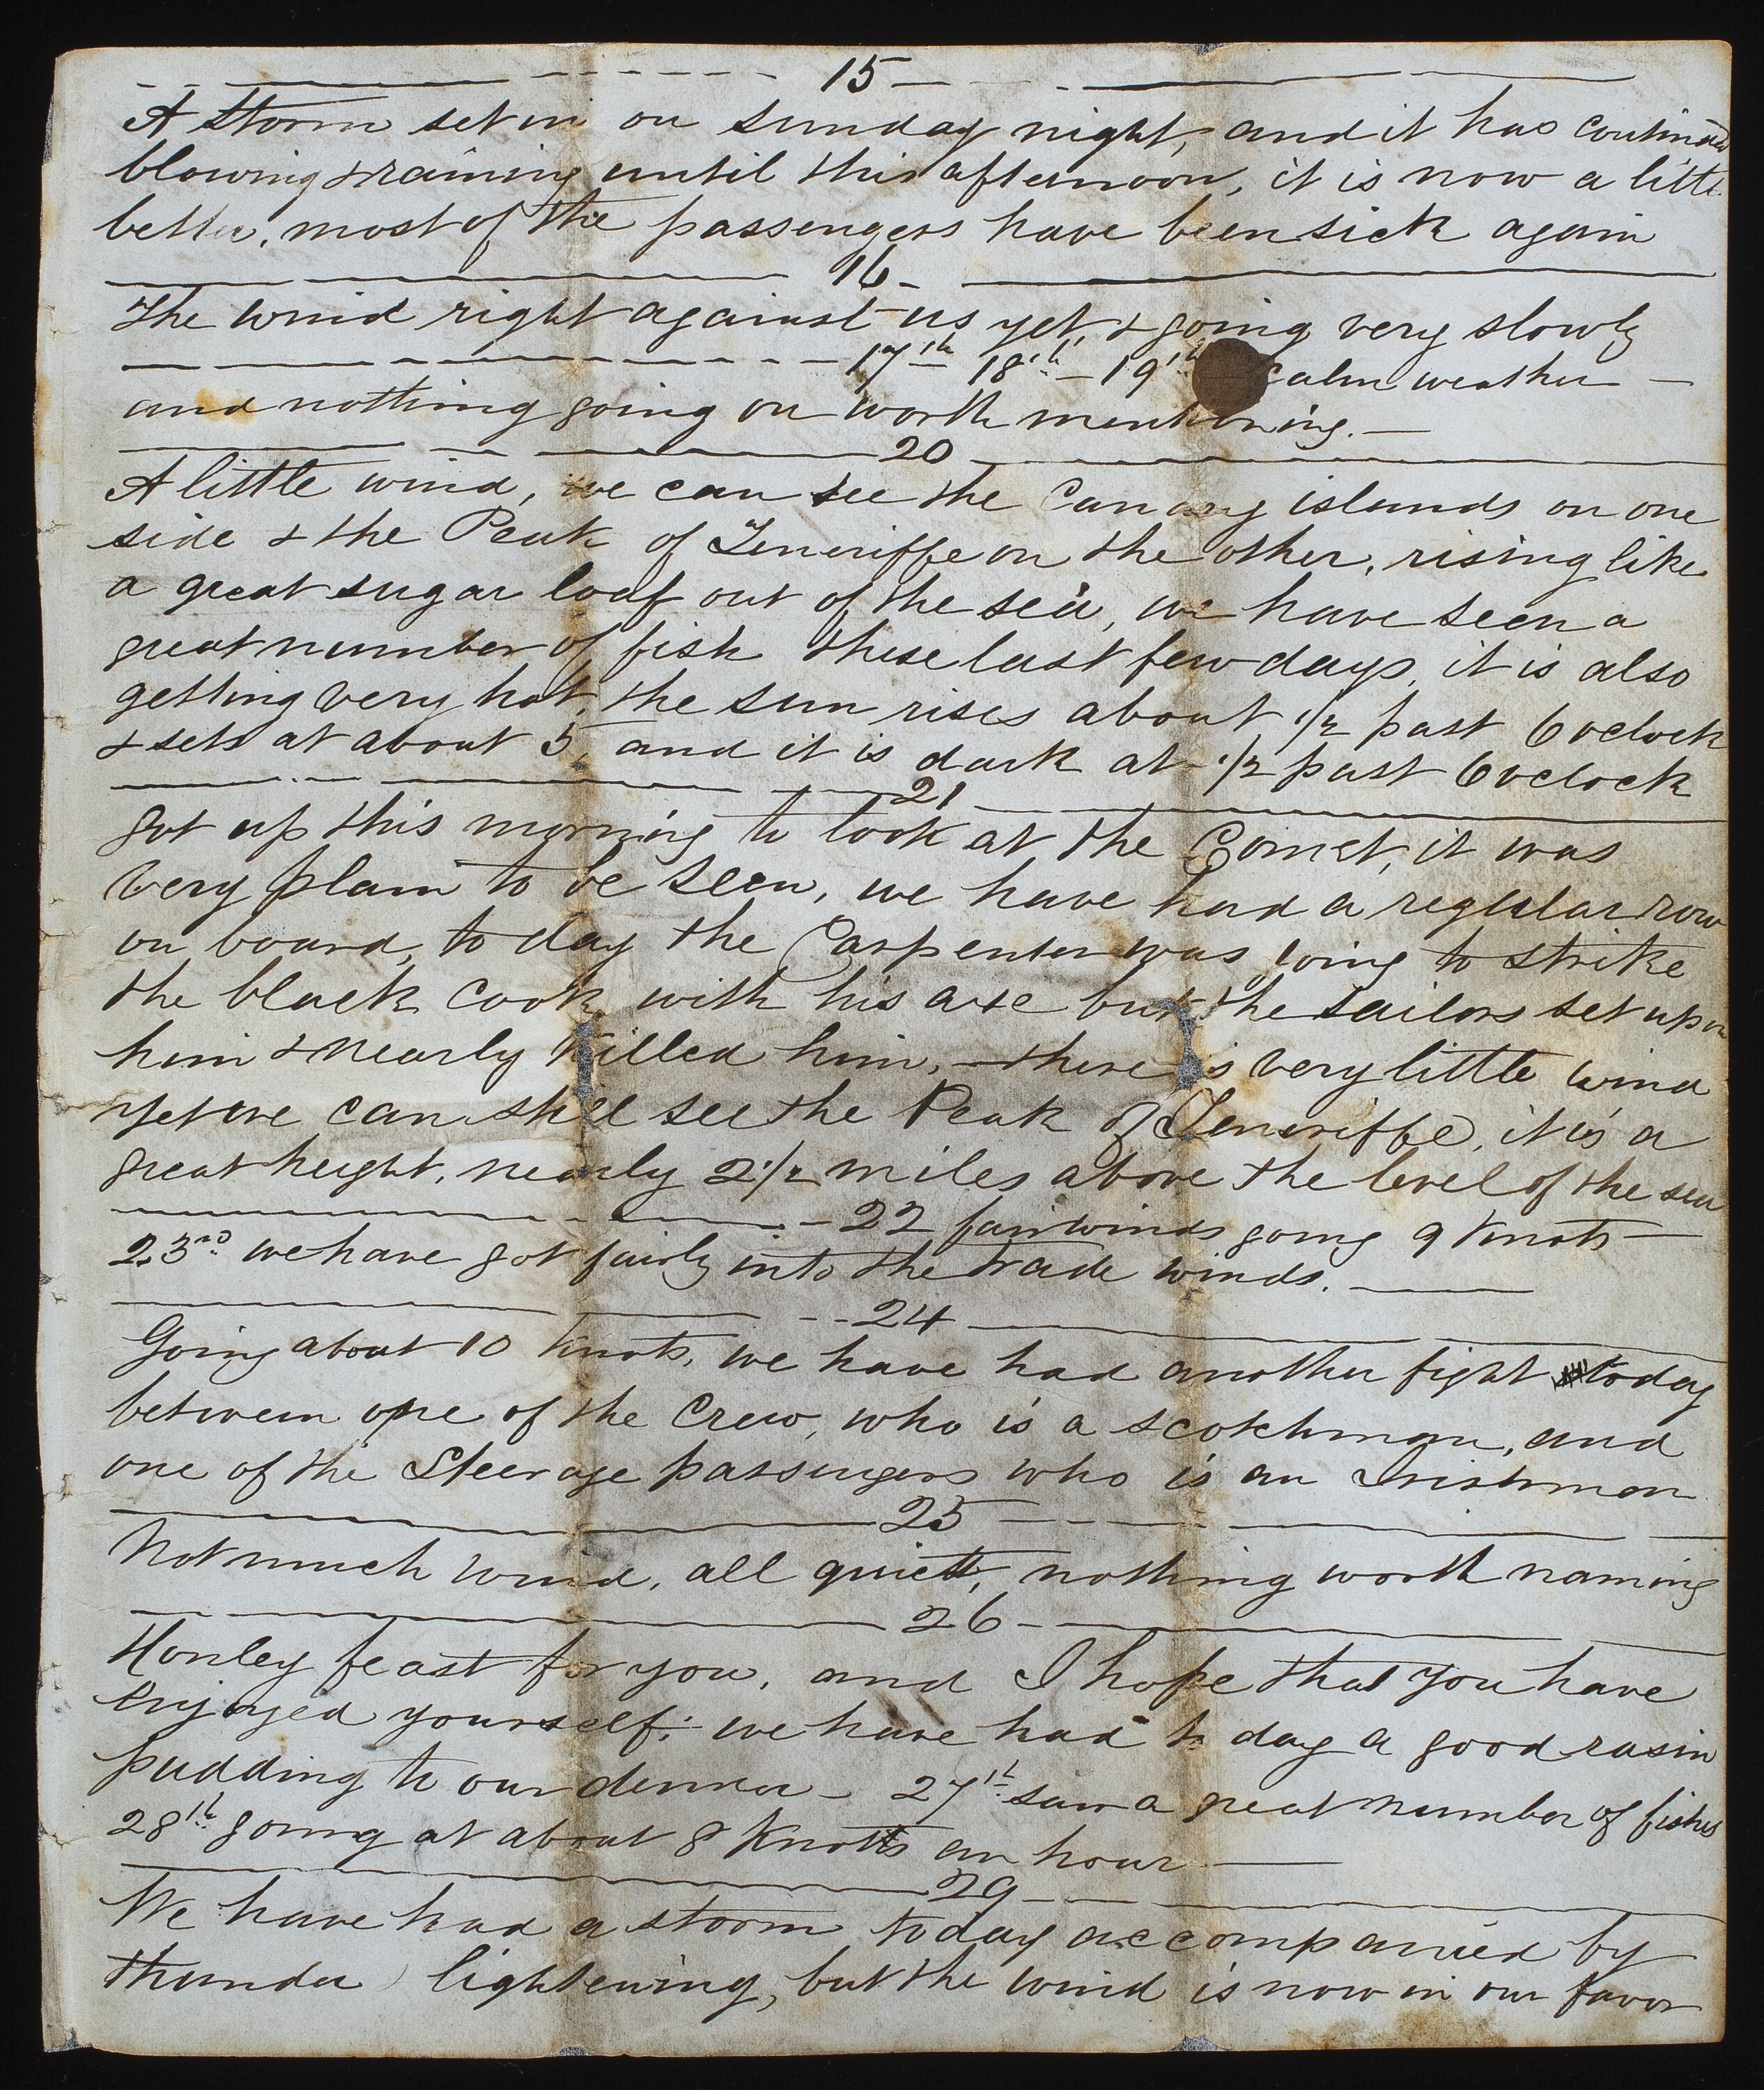 15
A storm set in on sunday night, and it has continued
blowing & raining until this afternoon, it is now a little
better, most of the passengers have been sick again
16
The wind right against us yet, & going very slowly
17th 18th 19th Calm weather
and nothing going on worth mentioning.
20
A little wind, we can see the Canary islands on one
side & the Peak of Teneriffe on the other, rising like
a great sugar loaf out of the sea, we have seen a
great number of fish these last few days, it is also
getting very hot, the sun rises about 1/2 past 6 oclock
& sets at about 5, and it is dark at 1/2 past 6 oclock
21
got up this morning to look at the Comet, it was
very plain to be seen, we have had a regular row
on board, to day the Carpenter was going to strike
the black cook with his axe but the sailors set upon
him & nearly killed him, there is very little wind
yet we can still see the Peak of Teneriffe, it is a
great height, nearly 2 1/2 miles above the level of the sea
22 fair winds going 9 Knots
23rd we have got fairly into the trade winds.
24
Going about 10 Knots, we have had another fight today
between one of the Crew, who is a scotchman, and
one of the Steerage passengers who is an Irishman
25
Not much wind, all quiett, nothing worth naming
26
Honley feast for you, and I hope that you have
enjoyed yourself: we have had to day a good rasin
pudding to our dinner - 27th saw a great number of fishes
28th going at about 8 Knotts an hour
29
We have had a storm today accompanied by
thunder lightening, but the wind is now in our favor